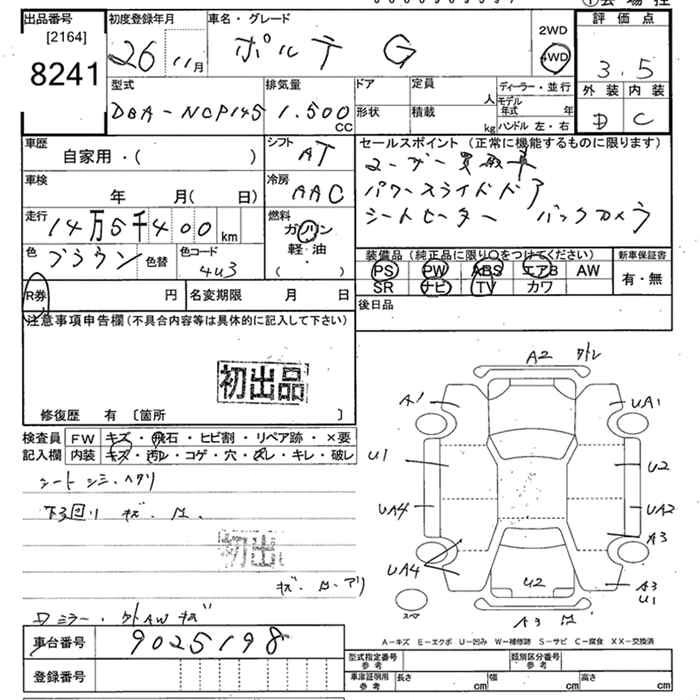 出品番号
[2164]
8241
初度登録年月
26 11月
車名・グレード
ポルテ G
2WD
4WD
評価点
3.5
外装 内装
D C
型式
DBA-NCP145
排気量
1.500 CC
ドア
形状
定員 人
積載 kg
ディーラー・並行
モデル年式 年
ハンドル 左・右
車歴
自家用・( )
シフト
AT
セールスポイント (正常に機能するものに限ります)
ユーザー買取車
パワースライドドア
シートヒーター バックカメラ
車検
年 月( 日)
冷房
AAC
走行
14万5千400 km
燃料
ガソリン
軽・油
( ・ )
色
ブラウン
色替
色コード
4U3
装備品 (純正品に限り○をつけてください)
新車保証書
PS PW ABS エアB AW
SR ナビ TV カワ
有・無
R券 円
名変期限 月 日
後日品
注意事項申告欄 (不具合内容等は具体的に記入して下さい)
初出品
修復歴 有 〔箇所 〕
検査員
記入欄
FW キズ・飛石・ヒビ割・リペア跡・×要
内装 キズ・汚レ・コゲ・穴・スレ・キレ・破レ
シート シミ・ヘタリ
下回り キズ
初出
Dミラー・ AW キズ
A2
A1
UA1
U1
U2
UA4
UA2
A3
UA4
U2
A3
U1
スペア
A3
A-キズ E-エクボ U-凹み W-補修跡 S-サビ C-腐食 XX-交換済
車台番号
9025198
登録番号
型式指定番号
参考
類別区分番号
参考
車庫証明用
参考
長さ cm 幅 cm 高さ cm